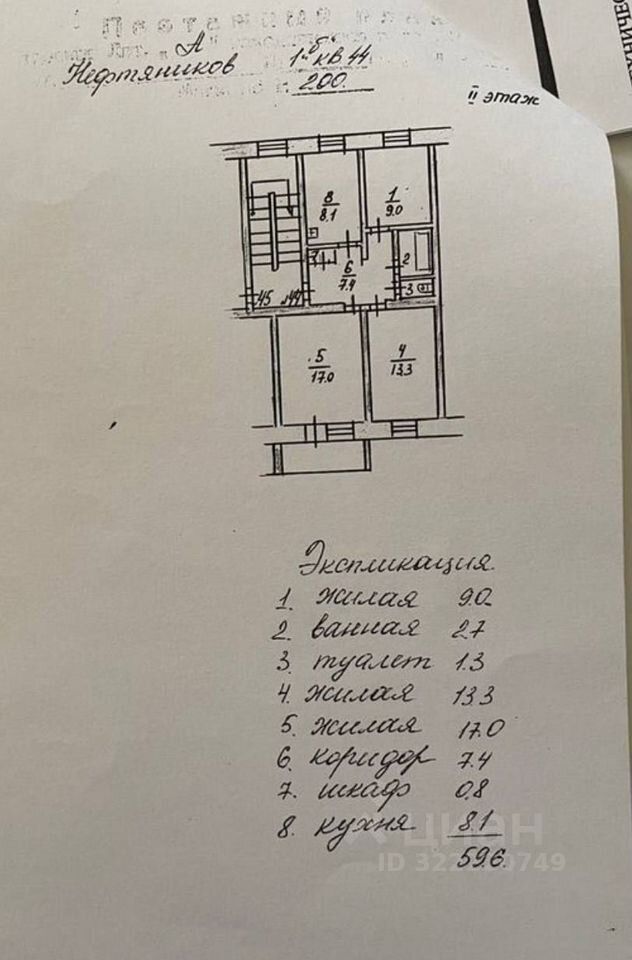 А
Нефтяников 1"б" кв 44
200.
II этаж
8
8.1
1
9.0
2
7
6
7.4
3
45 44
5
17.0
4
13.3
Экспликация.
1. жилая 9.0
2. ванная 2.7
3. туалет 1.3
4. жилая 13.3
5. жилая 17.0
6. коридор 7.4
7. шкаф 0.8
8. кухня 8.1
59.6.
циан